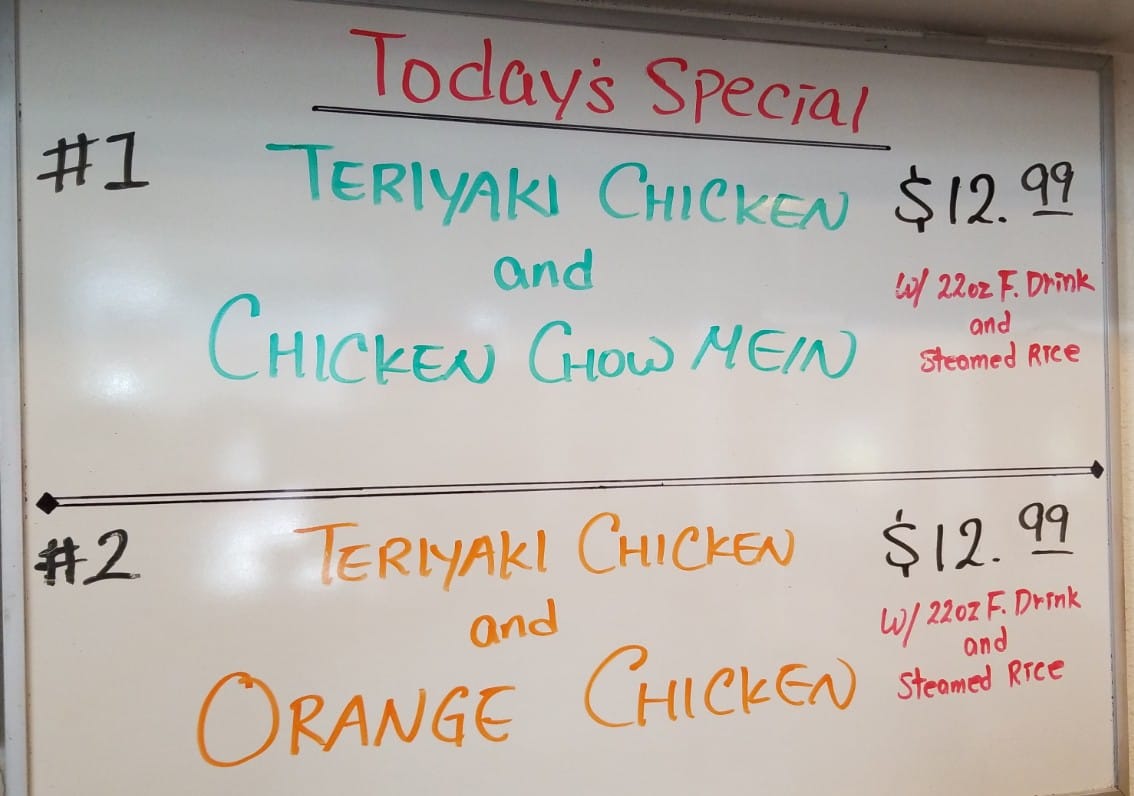 Today's Special
#1 TERIYAKI CHICKEN $12.99
and
CHICKEN CHOW MEIN
w/ 22oz F. Drink
and
Steamed Rice
#2 TERIYAKI CHICKEN $12.99
and
ORANGE CHICKEN
w/ 22oz F. Drink
and
Steamed Rice